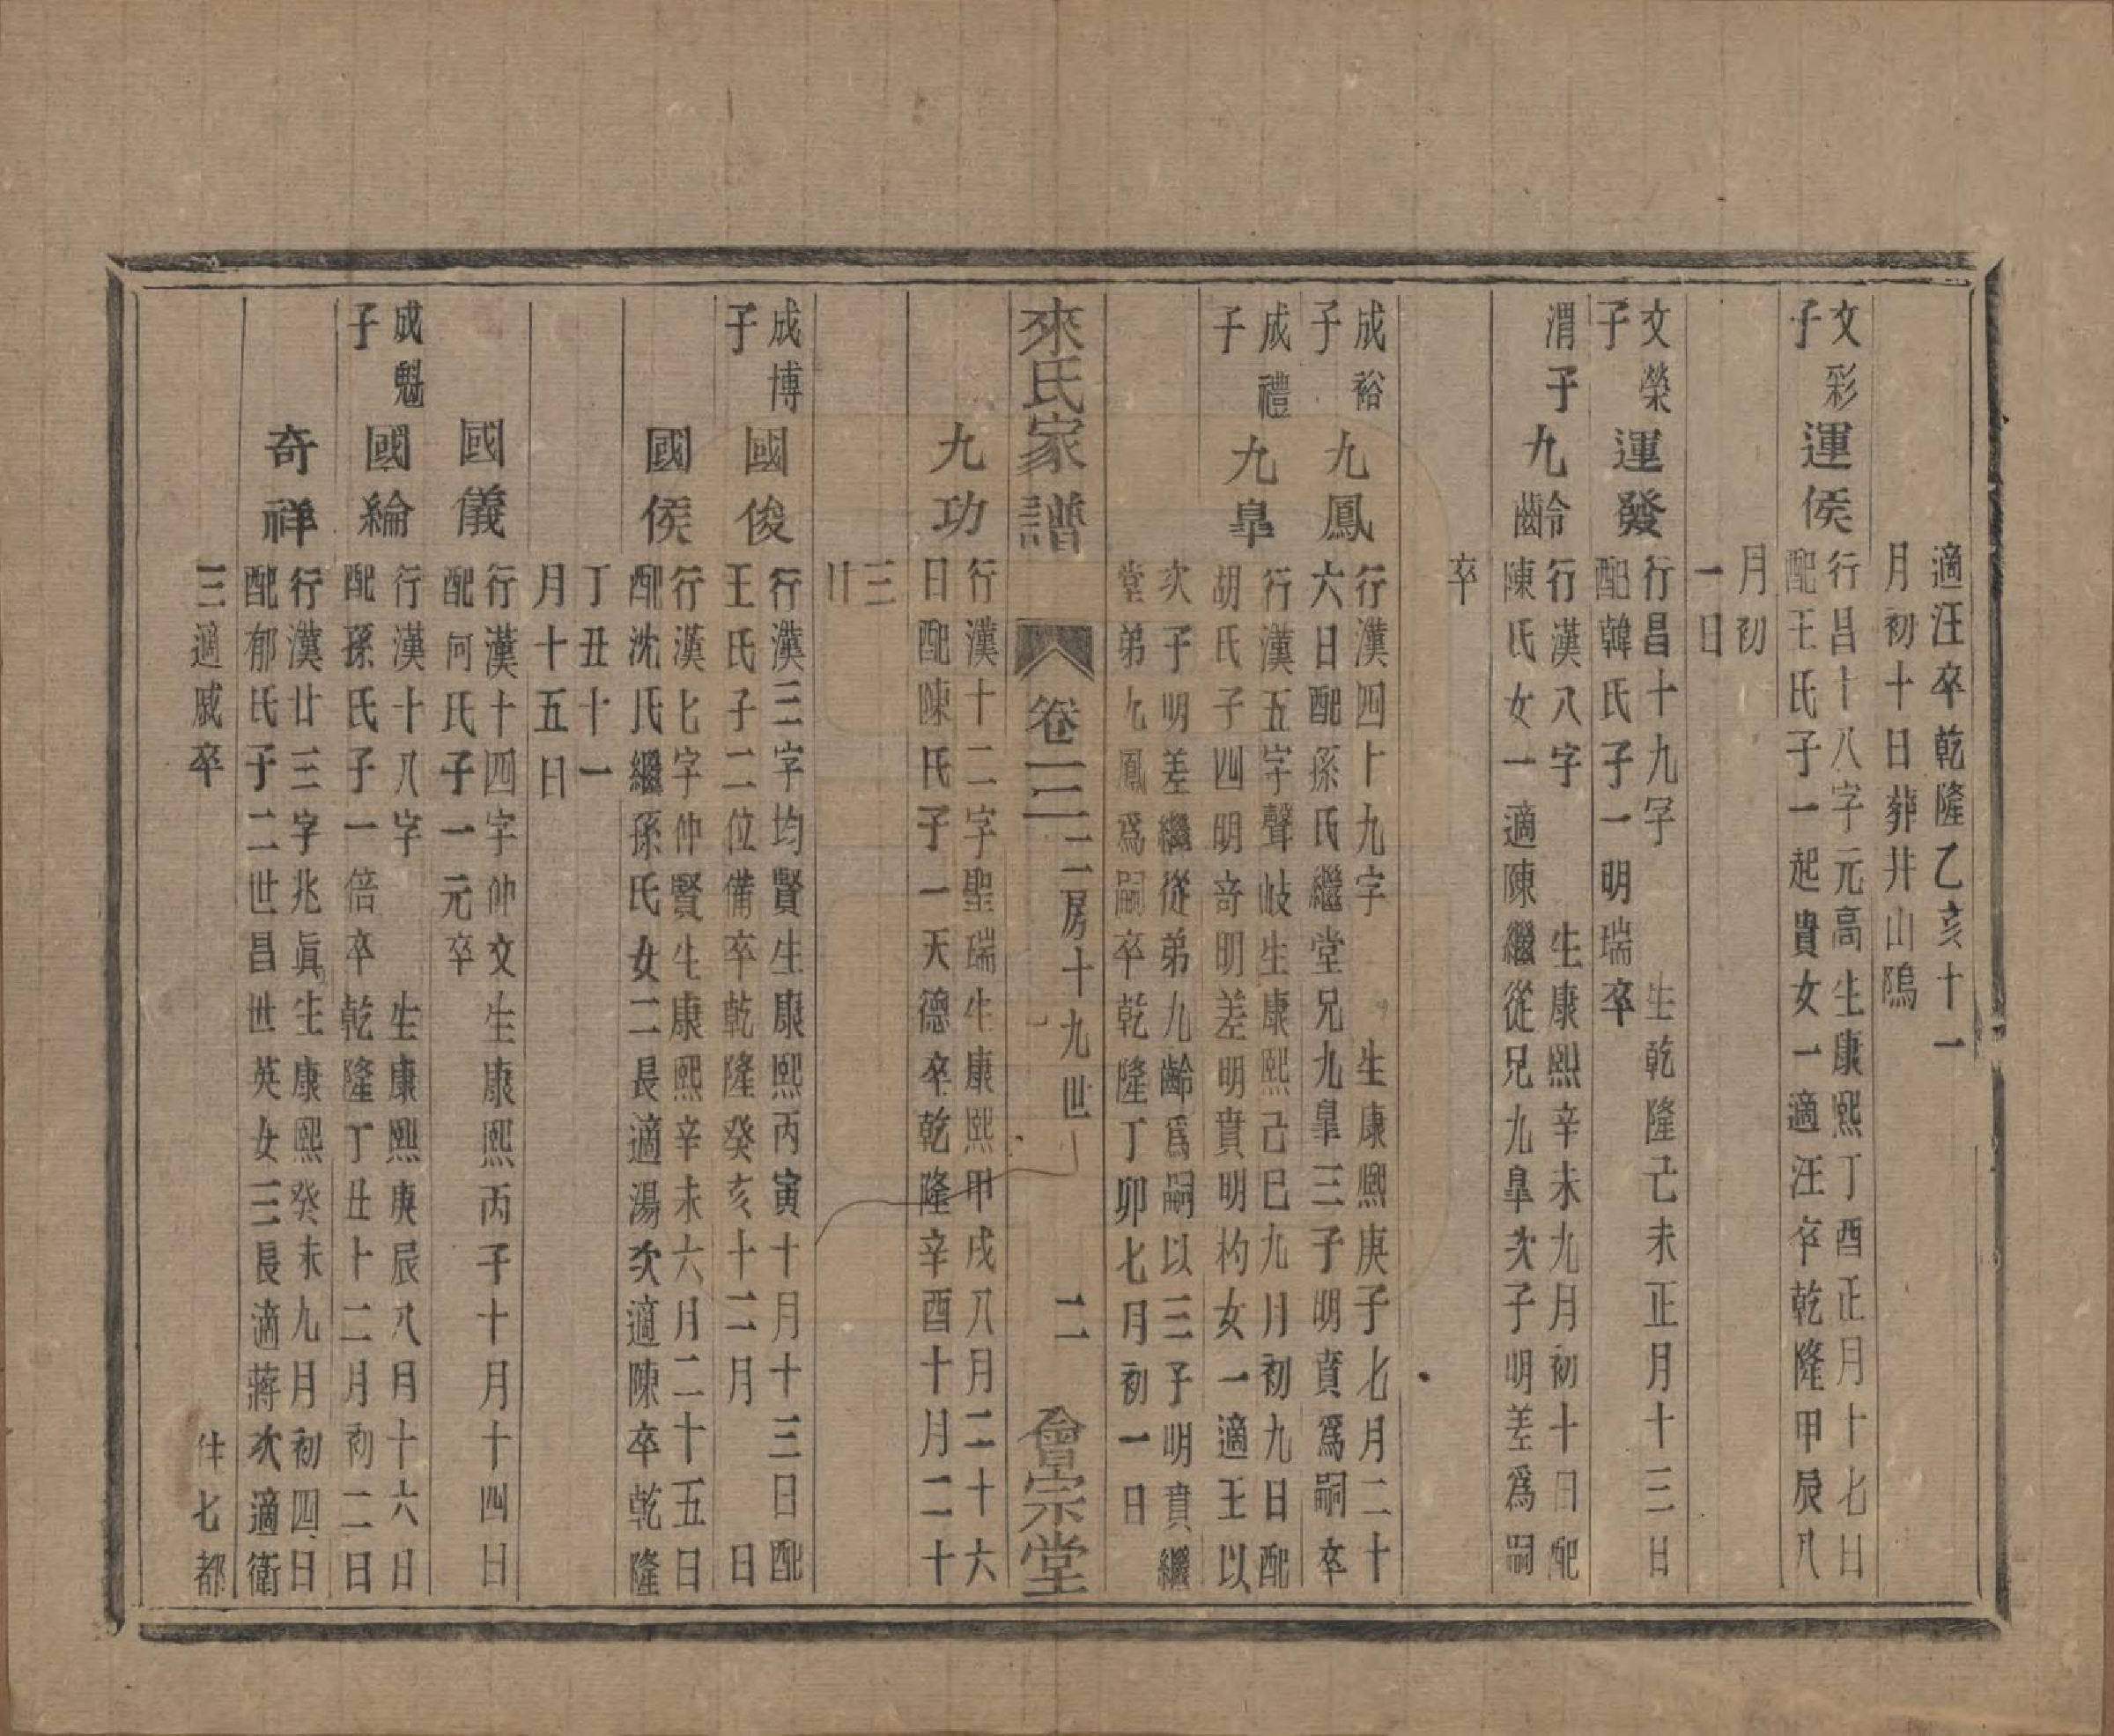 適汪卒乾隆乙亥十一
月初十日葬井山隖
文彩
子
運侯
行昌十八字元高生康熙丁酉正月十七日
配王氏子一起貴女一適汪卒乾隆甲辰八
月初
一日
文榮
子
運發
行昌十九字 生乾隆己未正月十三日
配韓氏子一明瑞卒
渭子
九齡
行漢八字 生康熙辛未九月初十日配
陳氏女一適陳繼從兄九臯次子明差為嗣
卒
成裕
子
九鳳
行漢四十九字 生康熙庚子七月二十
六日配孫氏繼堂兄九臯三子明賁為嗣卒
成禮
子
九臯
行漢五字聲岐生康熙己巳九月初九日配
胡氏子四明奇明差明賁明杓女一適王以
次子明差繼從弟九齡為嗣以三子明賁繼
堂弟九鳳為嗣卒乾隆丁卯七月初一日
來氏家譜 卷三 二房十九世 二 會宗堂
九功
行漢十二字聖瑞生康熙甲戌八月二十六
日配陳氏子一天德卒乾隆辛酉十月二十
三
日
成博
子
國俊
行漢三字均賢生康熙丙寅十月十三日配
王氏子二位備卒乾隆癸亥十二月 日
國侯
行漢七字仲賢生康熙辛未六月二十五日
配沈氏繼孫氏女二長適湯次適陳卒乾隆
丁丑十一
月十五日
國儀
行漢十四字仲文生康熙丙子十月十四日
配何氏子一元卒
成魁
子
國綸
行漢十八字 生康熙庚辰八月十六日
配孫氏子一倍卒乾隆丁丑十二月初二日
奇祥
行漢廿三字兆眞生康熙癸未九月初四日
配郁氏子二世昌世英女三長適蔣次適衛
三適戚卒 住七都